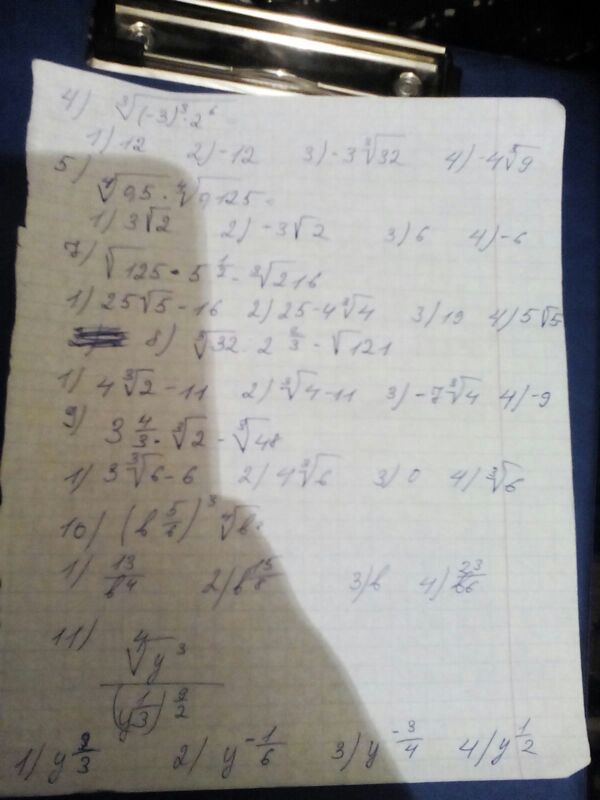 4) ∛((-3)³·2⁶ =
1) 12 2) -12 3) -3∛32 4) -4∛9
5)
∜9,5 · ∜9,125 =
1) 3√2 2) -3√2 3) 6 4) -6
7)
√125 · 5^(1/2) - ∛216
1) 25√5 - 16 2) 25 - 4∛4 3) 19 4) 5√5
8) ∛32 · 2^(2/3) - √121
1) 4∛2 - 11 2) ∛4 - 11 3) -7∛4 4) -9
9)
3^(4/3) · ∛2 - ∛48
1) 3∛6 - 6 2) 4∛6 3) 0 4) ∛6
10) (b^(5/6))³ ∜b =
1) b^(13/4) 2) b^(15/8) 3) b 4) b^(23/6)
11)
∜y³
(y^(1/3))^(9/2)
1) y^(2/3) 2) y^(-1/6) 3) y^(-3/4) 4) y^(1/2)